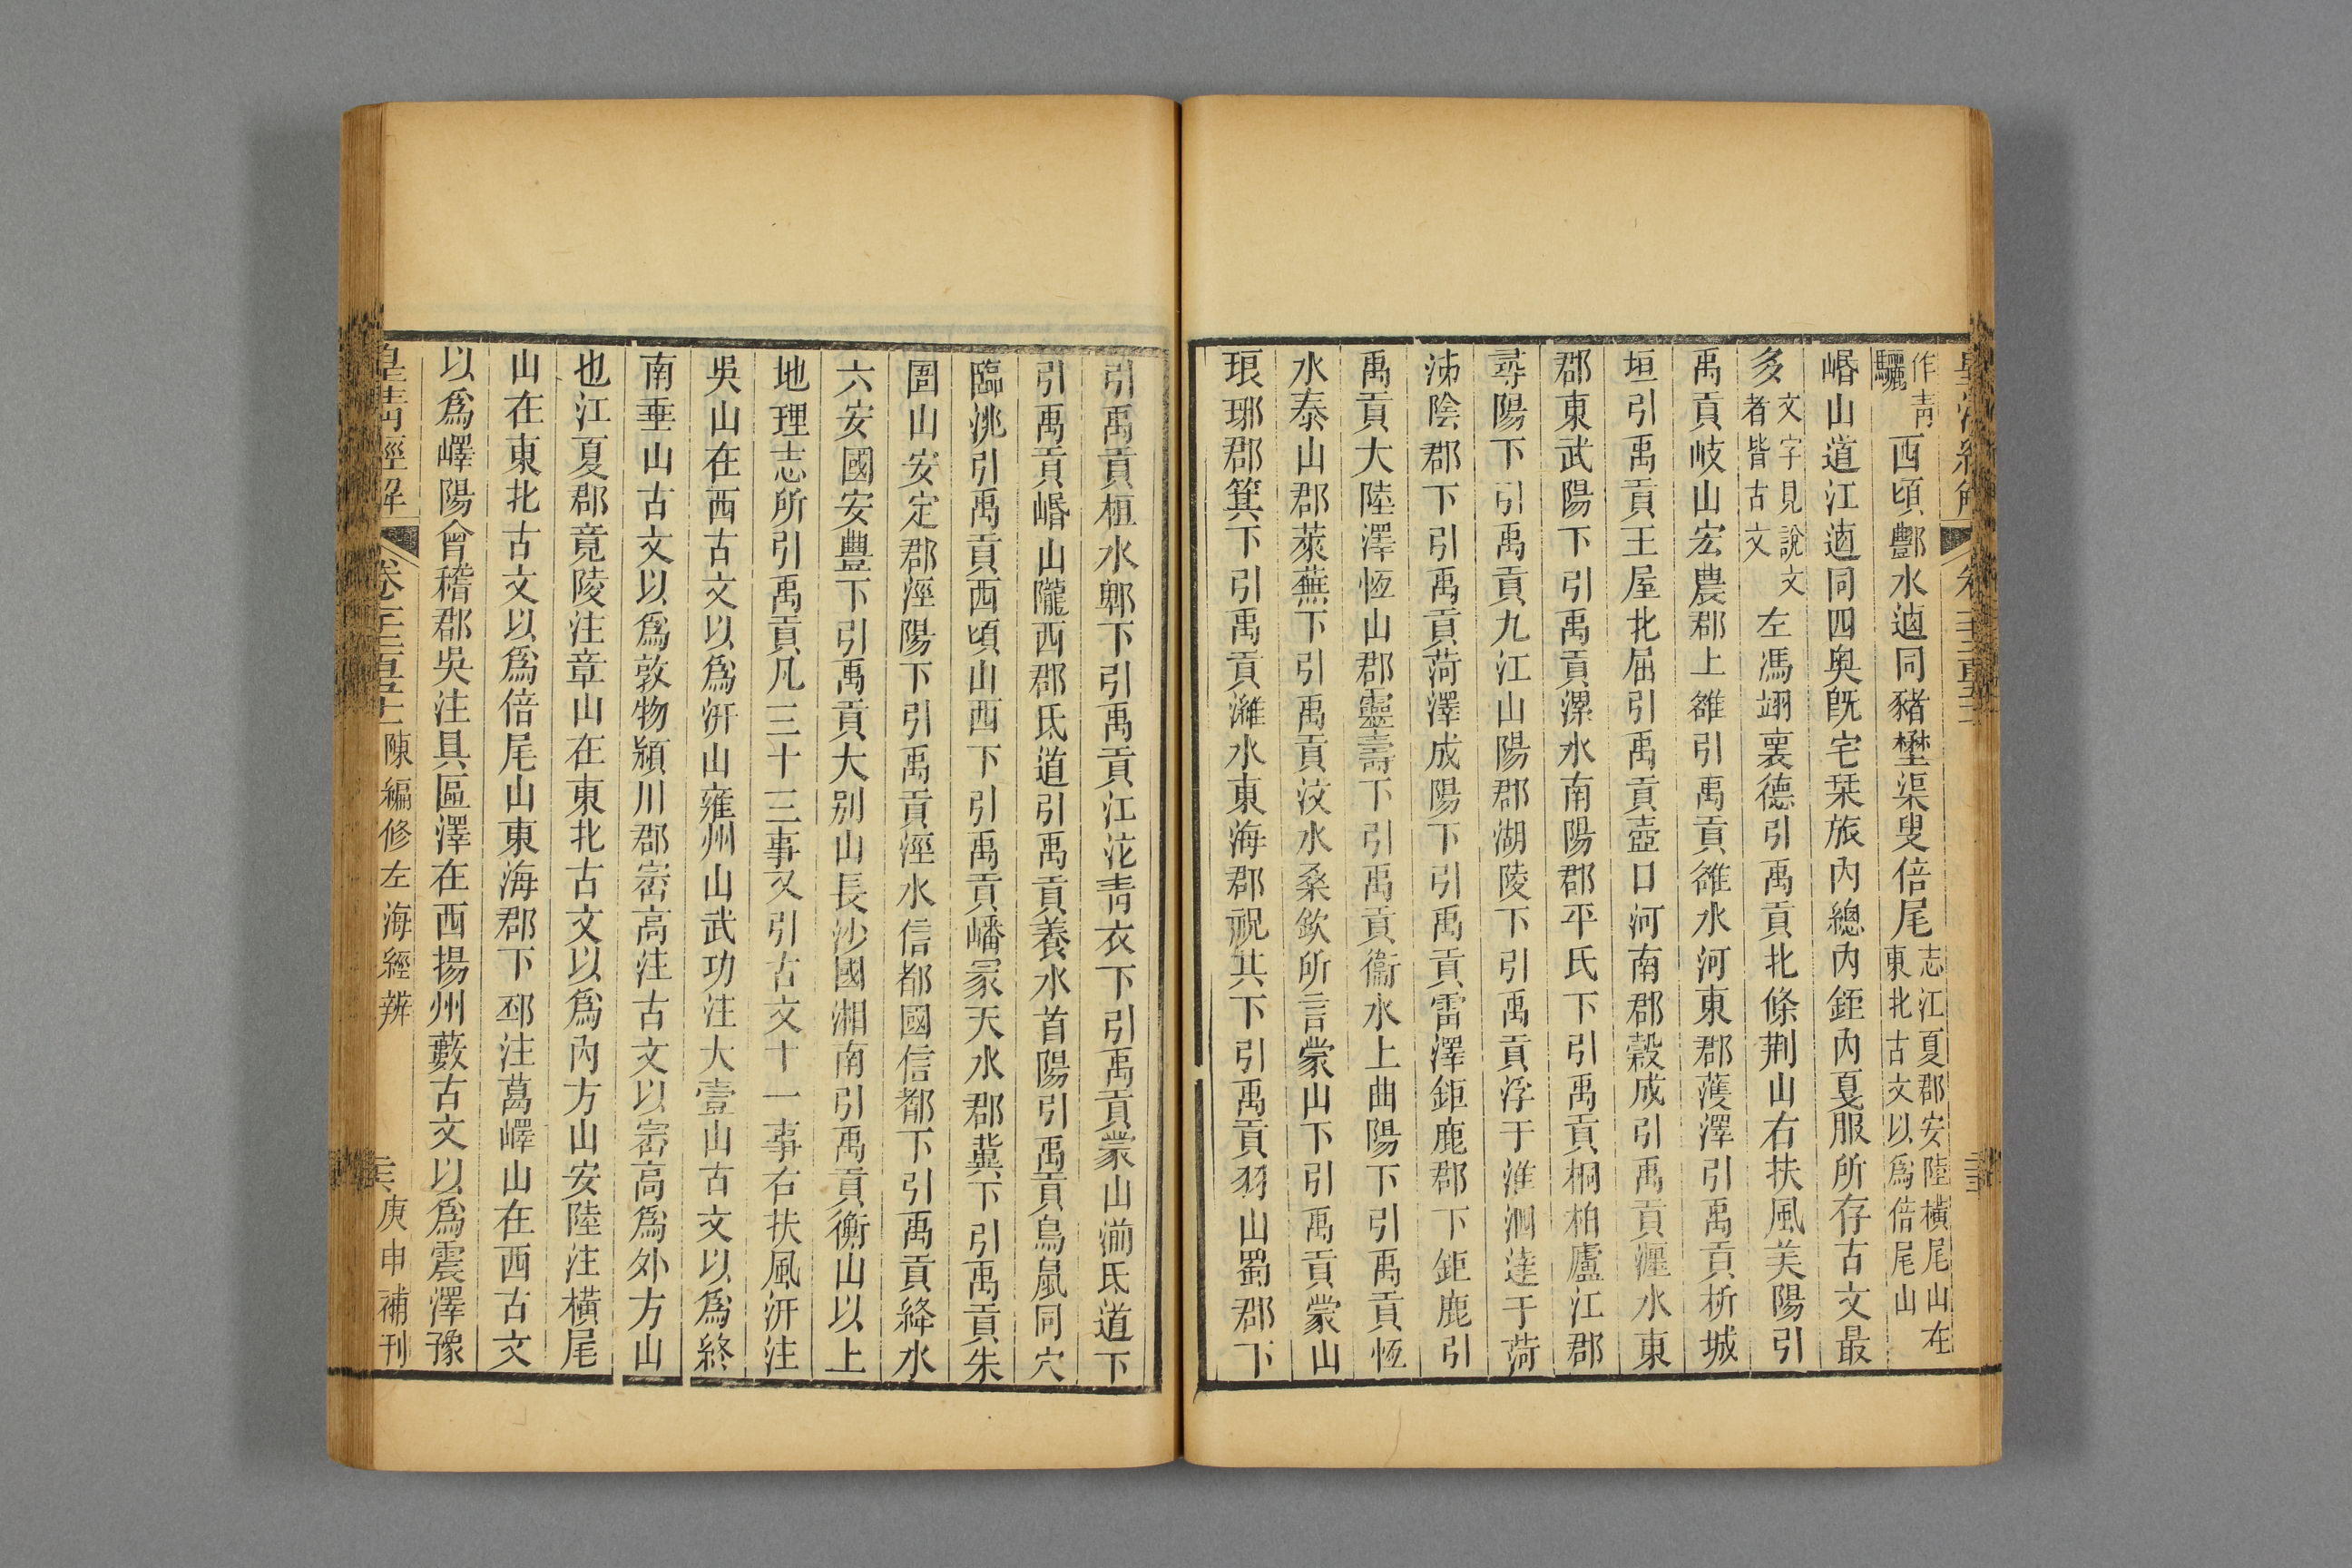 作青
驪
西頃酆水逌同豬壄渠叟倍尾
志江夏郡安陸橫尾山在
東北古文以爲倍尾山
㟭山道江逌同四奥旣宅栞旅內總內銍內戛服所存古文最
多
文字見說文
者皆古文
左馮翊襄德引禹貢北條荆山右扶風美陽引
禹貢岐山宏農郡上雒引禹貢雒水河東郡濩澤引禹貢析城
垣引禹貢王屋北屈引禹貢壺口河南郡穀成引禹貢瀍水東
郡東武陽下引禹貢漯水南陽郡平氏下引禹貢桐柏廬江郡
尋陽下引禹貢九江山陽郡湖陵下引禹貢浮于淮泗達于菏
泲陰郡下引禹貢菏澤成陽下引禹貢雷澤鉅鹿郡下鉅鹿引
禹貢大陸澤恆山郡靈壽下引禹貢衞水上曲陽下引禹貢恆
水泰山郡萊蕪下引禹貢汶水桑欽所言蒙山下引禹貢蒙山
琅邪郡箕下引禹貢濰水東海郡祝其下引禹貢羽山蜀郡下
引禹貢桓水郫下引禹貢江沱青衣下引禹貢蒙山湔氐道下
引禹貢㟭山隴西郡氐道引禹貢養水首陽引禹貢鳥鼠同穴
臨洮引禹貢西頃山西下引禹貢嶓冡天水郡冀下引禹貢朱
圄山安定郡涇陽下引禹貢涇水信都國信都下引禹貢絳水
六安國安豐下引禹貢大别山長沙國湘南引禹貢衡山以上
地理志所引禹貢凡三十三事又引古文十一事右扶風汧注
吳山在西古文以爲汧山雍州山武功注大壹山古文以爲終
南垂山古文以爲敦物潁川郡崈高注古文以崈高爲外方山
也江夏郡竟陵注章山在東北古文以爲內方山安陸注橫尾
山在東北古文以爲倍尾山東海郡下邳注葛嶧山在西古文
以爲嶧陽會稽郡吳注具區澤在西揚州藪古文以爲震澤豫
皇清經解
陳編修左海經辨
庚申補刊